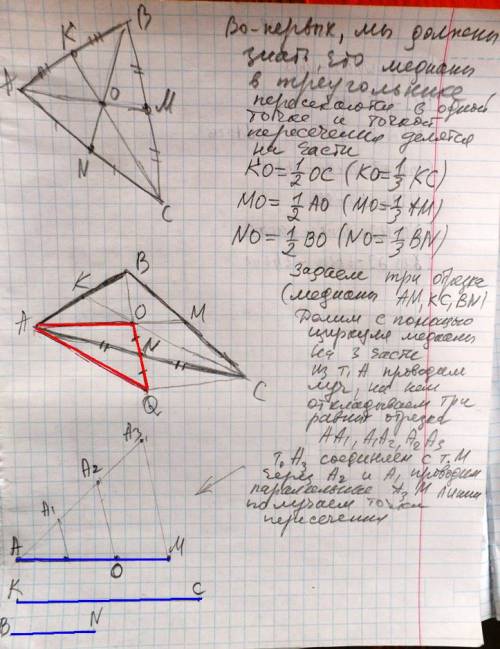 Во-первых, мы должны
знать, что медианы
в треугольнике
пересекаются в одной
точке и точкой
пересечения делятся
на части
KO=1/2 OC (KO=1/3 KC)
MO=1/2 AO (MO=1/3 AM)
NO=1/2 BO (NO=1/3 BN)
K
B
A
O
M
N
C
Задаем три отрезка
(медианы AM, KC, BN)
Делим с помощью
циркуля медианы
на 3 части
из т. A проводим
луч, на нем
откладываем три
равных отрезка
AA1, A1A2, A2A3
т. A3 соединяем с т. M
через A2 и A1 проводим
параллельные A3M линии
получаем точки
пересечения
B
K
A
O
M
N
C
Q
A3
A2
A1
A
O
M
K
C
B
N